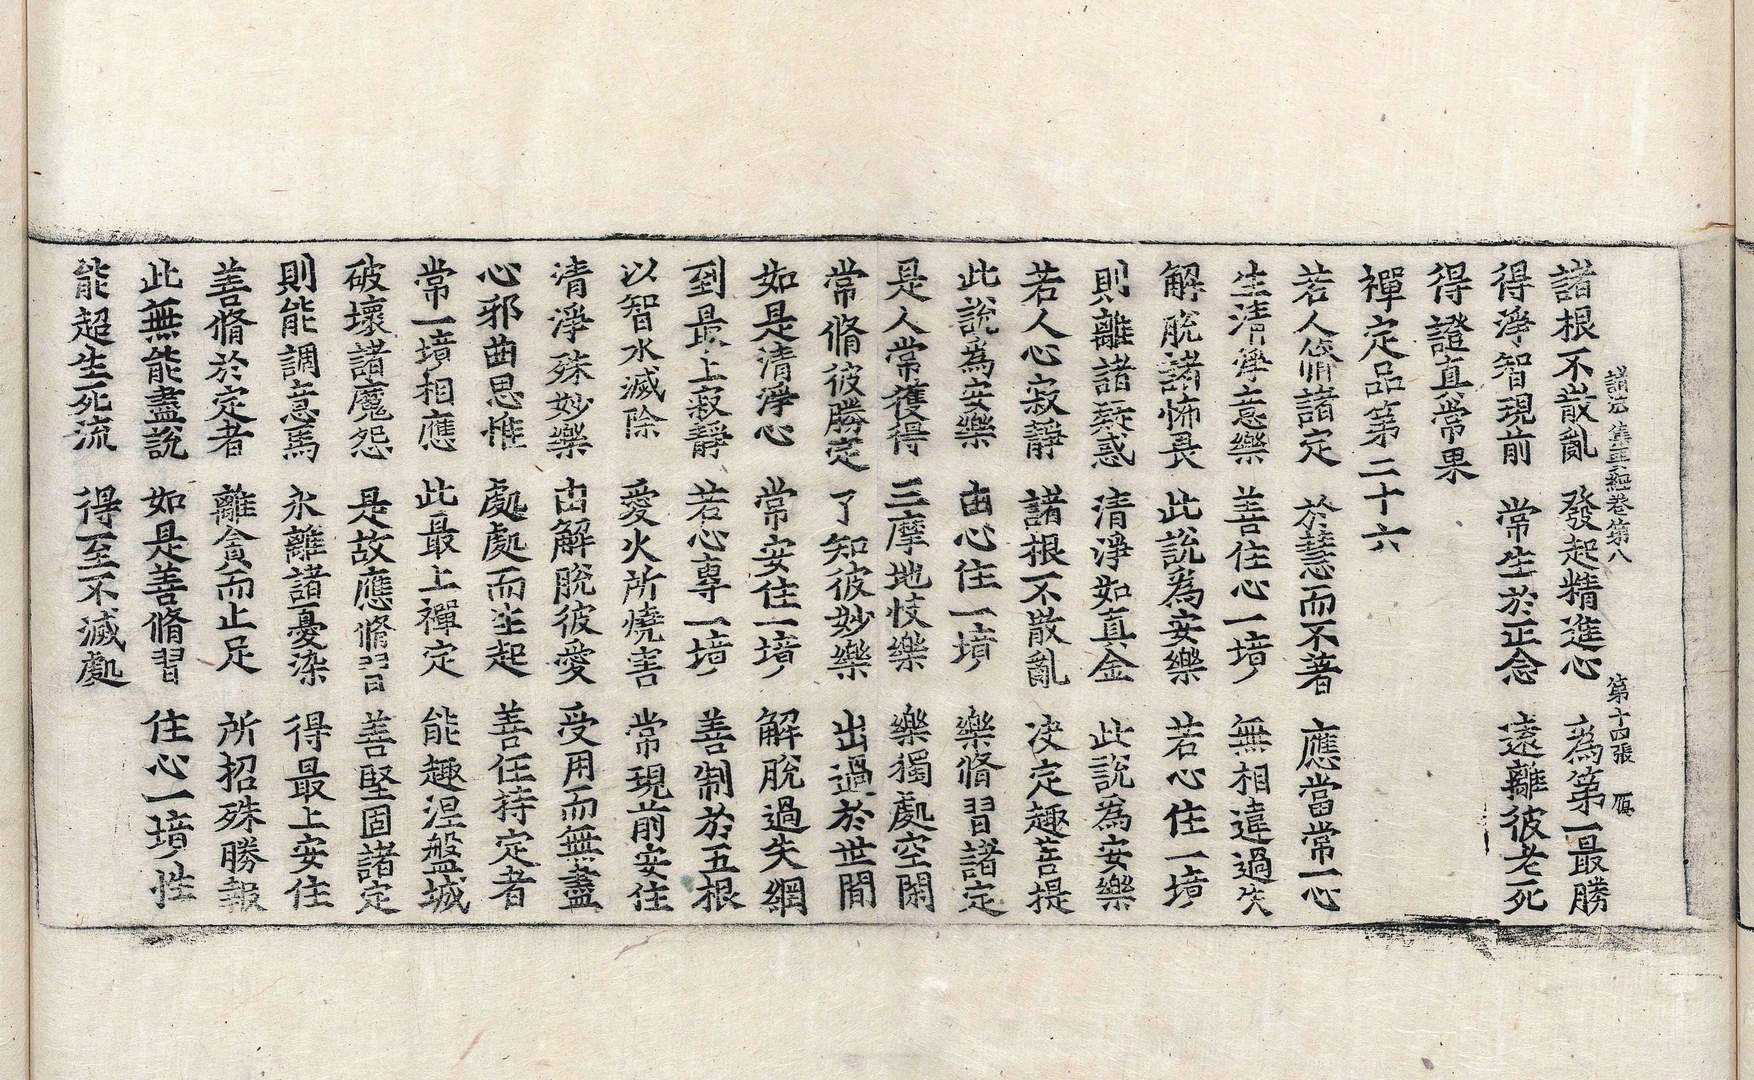 諸法集要經卷第八　第十四張　雁
諸根不散亂　發起精進心　為第一最勝
得淨智現前　常生於正念　遠離彼老死
得證真常果
禪定品第二十六
若人脩諸定　於慧而不著　應當常一心
生清淨意樂　善住心一境　無相違過失
解脫諸怖畏　此說為安樂　若心住一境
則離諸疑惑　清淨如真金　此說為安樂
若人心寂靜　諸根不散亂　決定趣菩提
此說為安樂　由心住一境　樂脩習諸定
是人常獲得　三摩地忮樂　樂獨處空閑
常脩彼勝定　了知彼妙樂　出過於世間
如是清淨心　常安住一境　解脫過失網
到最上寂靜　若心專一境　善制於五根
以智水滅除　愛火所燒害　常現前安住
清淨殊妙樂　由解脫彼愛　受用而無盡
心邪曲思惟　處處而生起　善任持定者
常一境相應　此最上禪定　能趣涅盤城
破壞諸魔怨　是故應脩習　善堅固諸定
則能調意馬　永離諸憂染　得最上安住
善脩於定者　離貪而止足　所招殊勝報
此無能盡說　如是善脩習　住心一境性
能超生死流　得至不滅處